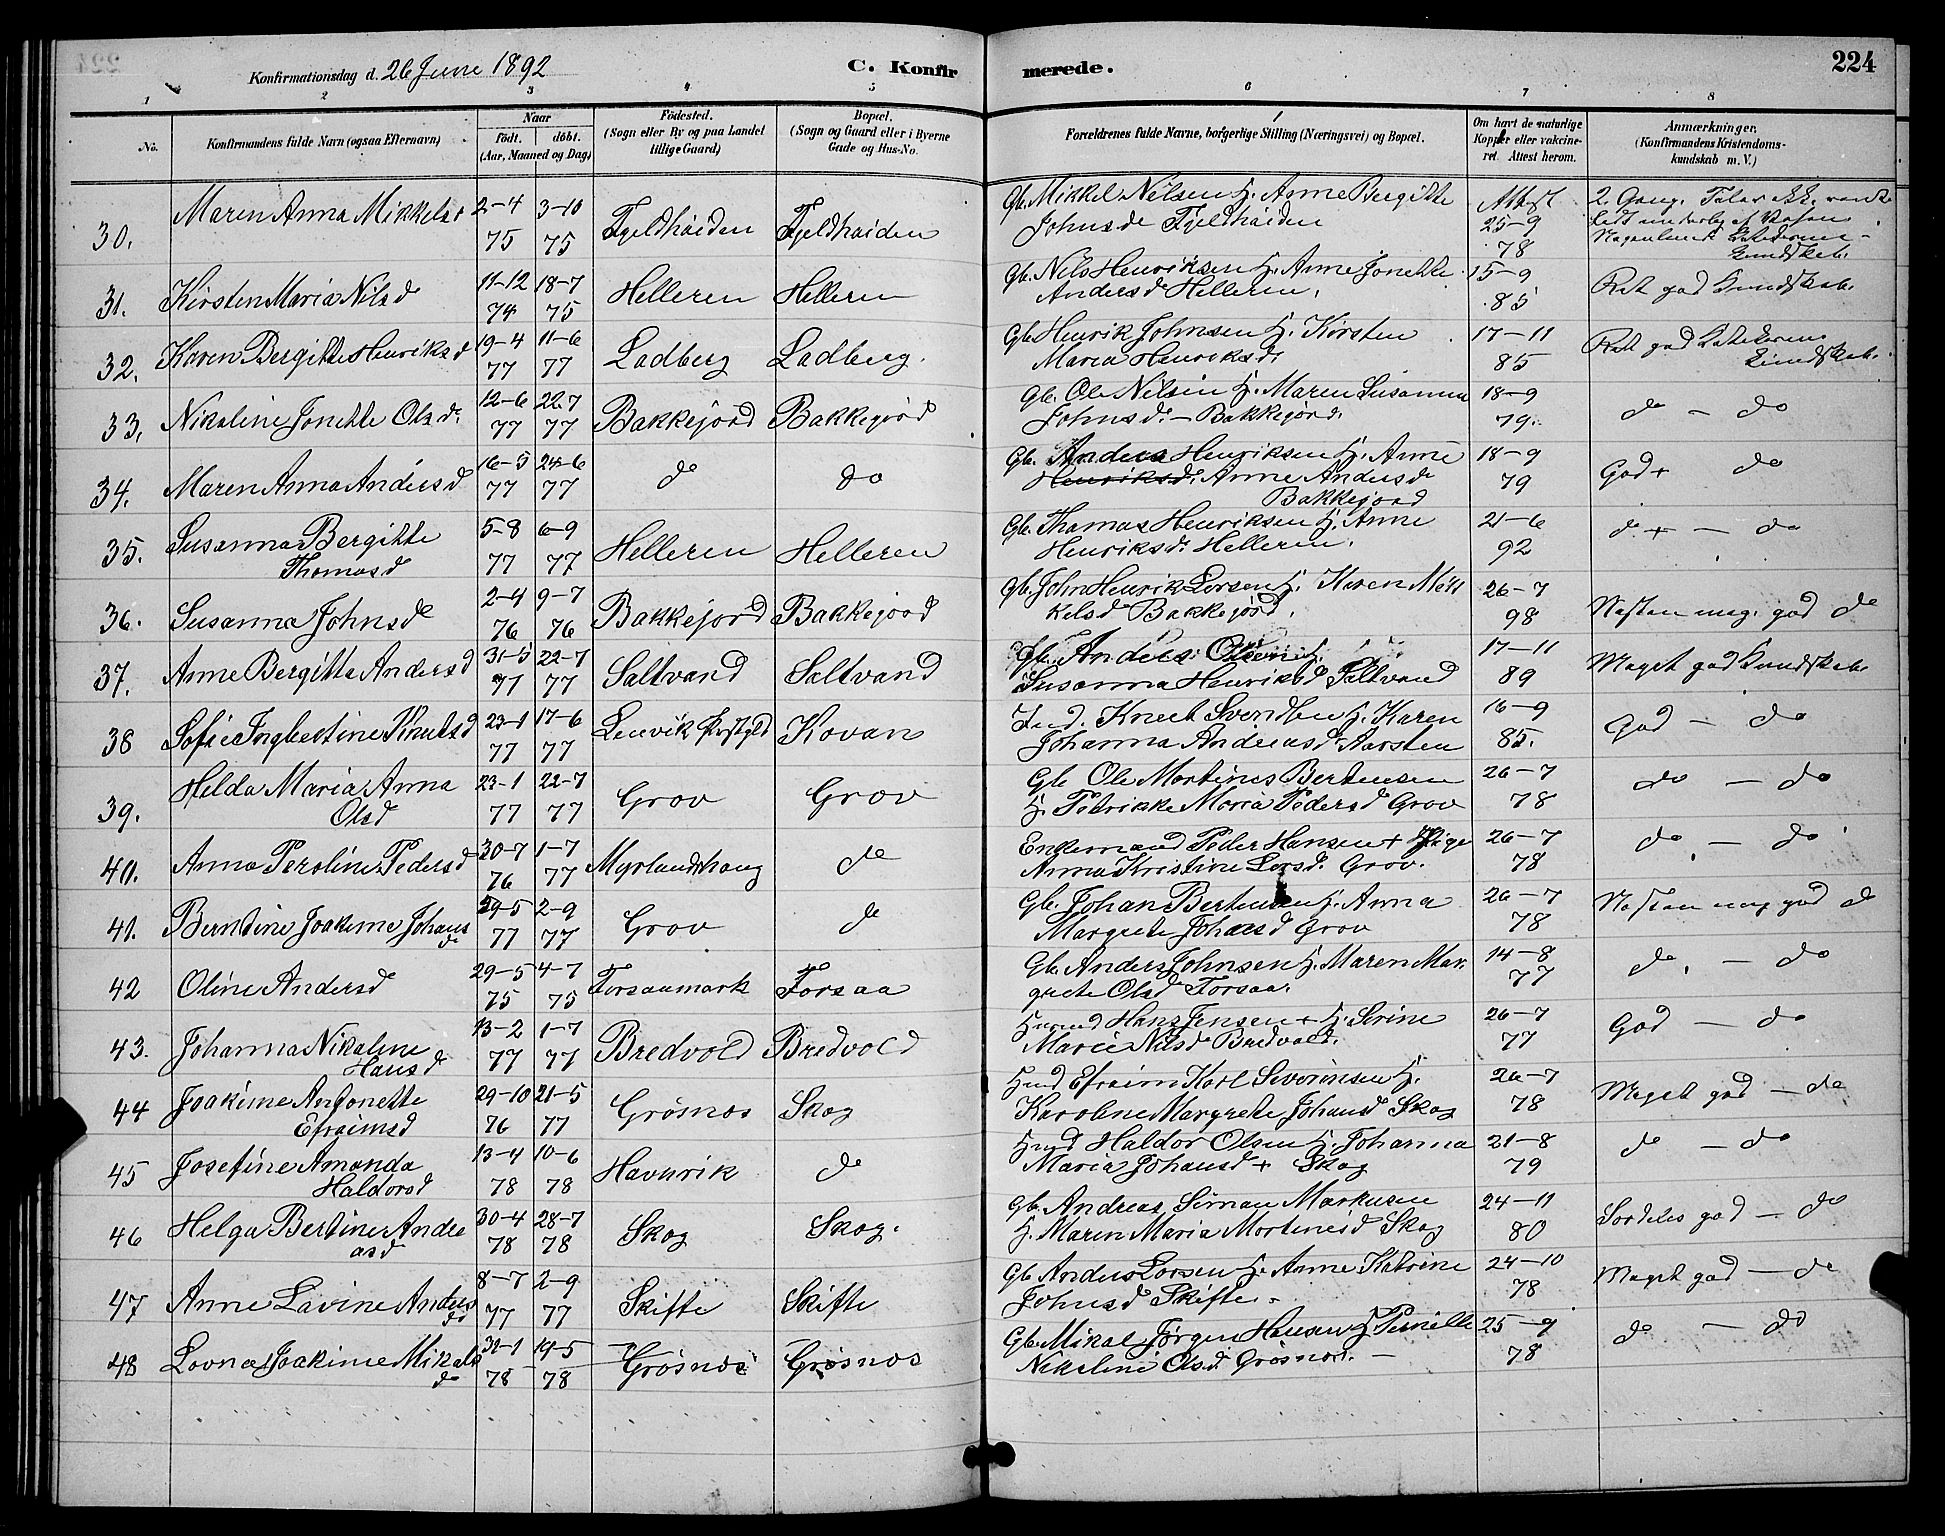 Konfirmationsdag d. 26 June 1892
C. Konfirmerede.
224
1 2 3 4 5 6 7 8
No.
Konfirmandens fulde Navn (ogsaa Efternavn)
Naar
födt. döbt.
(Aar, Maaned og Dag)
Födested.
(Sogn eller By og paa Landet
tillige Gaard)
Bopæl.
(Sogn og Gaard eller i Byerne
Gade og Hus-No.
Forældrenes fulde Navne, borgerlige Stilling (Næringsvei) og Bopæl.
Om havt de naturlige
Kopper eller vakcine-
ret. Attest herom.
Anmærkninger.
(Konfirmandens Kristendoms-
kundskab m. V.)
30. Maren Anna Mikkelsd 2-4 75 3-10 75 Fjeldhaiden Fjeldhaiden
Gb. Mikkel Nilsen H. Anne Bergitte
Johnsd Fjeldhaiden
Attest 25-9 78
2. Gang.
31. Kirsten Maria Nilsd 11-12 74 18-7 75 Helleren Helleren
Gb. Nils Henriksen H. Anne Jonette
Andersd Helleren.
15-9 85
Ret god Kundskab.
32. Karen Bergitte Henriksd 19-4 77 11-6 77 Ladberg Ladberg.
Gb. Henrik Johnsen H. Kirsten
Maria Henriksd.
17-11 85
Ret god
33. Nikoline Jonette Olsd. 12-6 77 22-7 77 Bakkejord Bakkejord
Gb. Ole Nilsen H. Maren Susanna
Johnsd. - Bakkejord.
18-9 79.
do - do
34. Maren Anna Andersd 16-5 77 24-6 77 do do
Gb. Anders Henriksen H. Anne
Henriksd. Anne Andersd
Bakkejord
18-9 79
God + do
35. Susanna Bergitte
Thomasd 5-8 77 6-9 77 Helleren Helleren
Gb. Thomas Henriksen H. Anne
Henriksd. Helleren.
21-6 92
do + - do
36. Susanna Johnsd 2-4 76 9-7 76 Bakkejord Bakkejord
Gb. John Henrik Larsen H. Karen Mik
kelsd Bakkejord.
26-7 98
Næsten meg. god do
37. Anne Bergitte Andersd 31-5 77 22-7 77 Saltvand Saltvand
Gb. Anders Olsen H.
Susanna Henriksd Saltvand
17-11 89
Meget god Kundskab
38 Sofie Ingbertine Knutsd 23-1 77 17-6 77 Lenvik Kovan
Ind. Knut H. Karen
Johanna Andreasd Aarsten
16-9 85.
God - do
39. Helda Maria Anna
Olsd 23-1 77 22-7 77 Grov Grov
Gb Ole Martines Bertensen
H. Petrikke Maria Pedersd Grov
26-7 78
do - do
40. Anna Peroline Pedersd 30-7 76 1-7 77 Myrlandshaug do
Enkemand Peder Hansen + Pige
Anna Kristine Larsd. Grov.
26-7 78
do - do
41. Berntine Joakime Johans
d. 29-5 77 2-9 77 Grov do
Gb. Johan Bertensen H. Anna
Margrete Johansd Grov
26-7 78
Næsten meg god do
42 Oline Andersd 29-5 75 4-7 75 Forsaamark Forsaa
Gb. Anders Johnsen H. Maren Mar
grete Olsd Forsaa.
14-8 77
do. - do
43. Johanna Nikoline
Hansd 13-2 77 1-7 77 Bredvold Bredvold
Husmd Hans Jensen + H. Serine
Marie Nilsd Bredvold.
26-7 77
God - do
44 Joakime Antonette
Efraimsd 29-10 76 21-5 77 Grøsnos Skog
Husmd Efraim Karl Severinsen H.
Karoline Margrete Johansd Skog
26-7 78
Meget god - do
45 Josefine Amanda
Haldorsd 13-4 78 10-6 78 Havnvik do
Husmd Haldor Olsen H. Johanna
Maria Johansd + Skog
21-8 79
do - do
46 Helga Bertine Andre
asd 30-4 78 28-7 78 Skog Skog.
Gb. Andreas Simon Markusen
H. Maren Maria Mortinesd Skog
24-11 80
Særdeles god - do
47 Anne Lavine Anders
d. 8-7 77 2-9 77 Skifte Skifte
Gb Anders Larsen H. Anne Katrine
Johnsd Skifte -
24-10 78
Meget god - do
48 Lovna Joakime Mikals
d. 31-1 78 19-5 78 Grøsnos Grøsnos
Gb. Mikal Jørgen Hansen H. Pernille
Nikoline Olsd Grøsnos. -
25-9 78
do - do